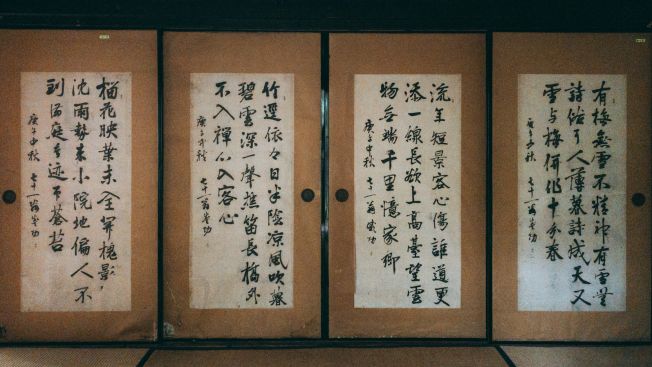 有梅無雪不精神有雪無
詩俗了人薄暮詩成天又
雪与梅併作十分春
庚午中秋 七十一翁
流年短景客心傷誰道更
添一線長欲上高臺望雲
物無端千里憶家郷
庚午中秋 七十一翁
竹逕依々日半陰涼風吹暮
碧雲深一聲樵笛長橋外
不入禅心入客心
庚午中秋 七十一翁
榴花映葉未全開槐影
沈雨勢来小院地偏人不
到満庭鳥迹印蒼苔
庚午中秋 七十一翁